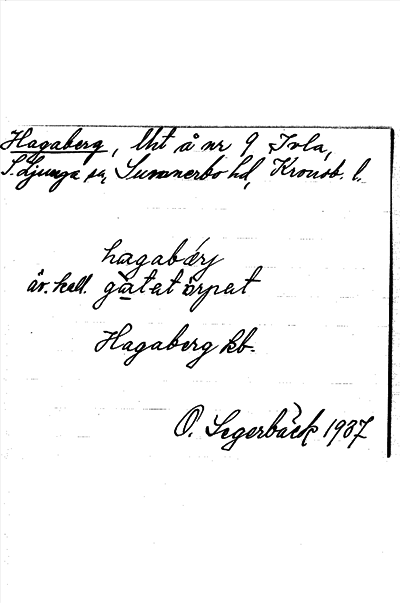 Hagaberg, lht å nr 9 Tvla,
S. Ljunga sn, Sunnerbo hd, Kronob. l.
hagabærj
äv. kall. gàtet örpet
Hagaberg kb.
O. Segerbäck 1937